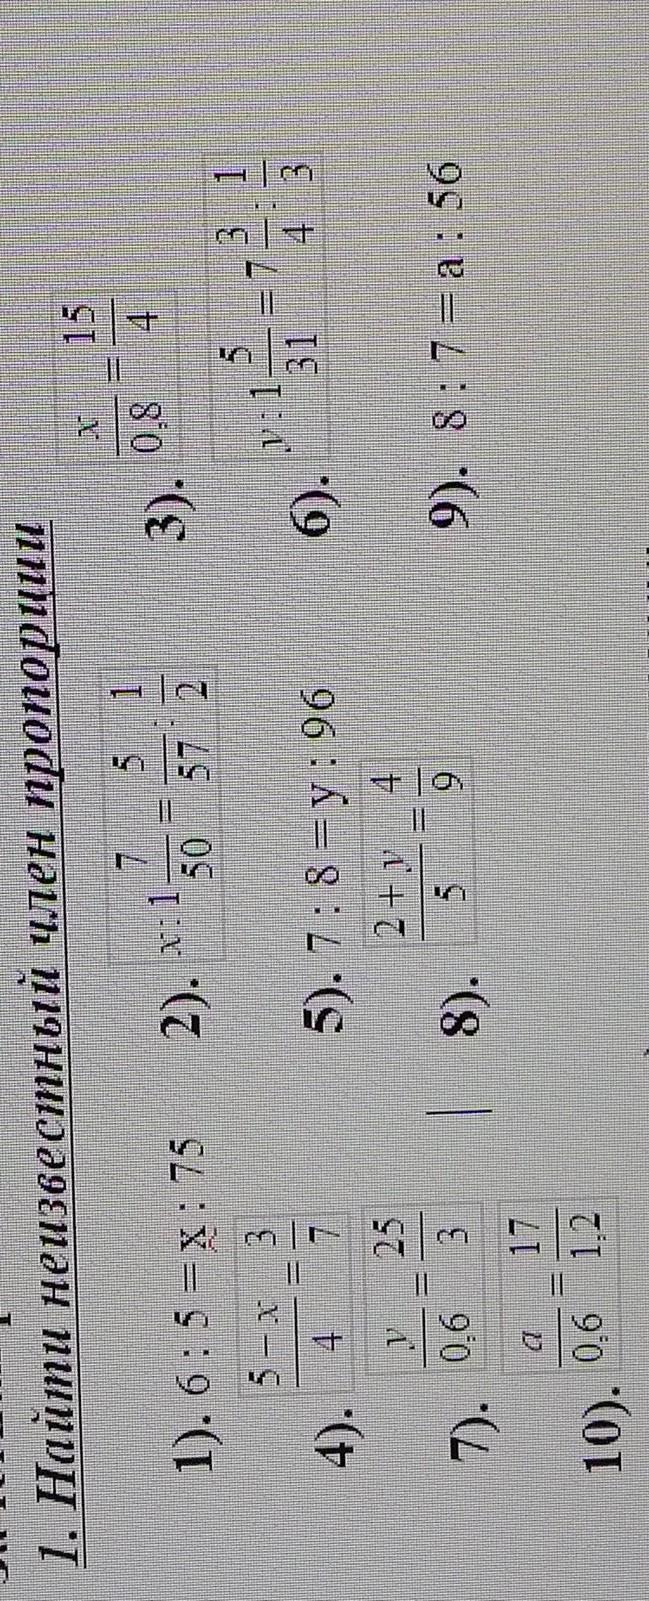 1. Найти неизвестный член пропорции
1). 6 : 5 = x : 75 2). x : 1 7/50 = 5/57 : 1/2 3). x/0,8 = 15/4
4). (5 − x)/4 = 3/7 5). 7 : 8 = y : 96 6). y : 1 5/31 = 7 3/4 : 1/3
7). y/0,6 = 25/3 8). (2 + y)/5 = 4/9 9). 8 : 7 = a : 56
10). a/0,6 = 17/1,2